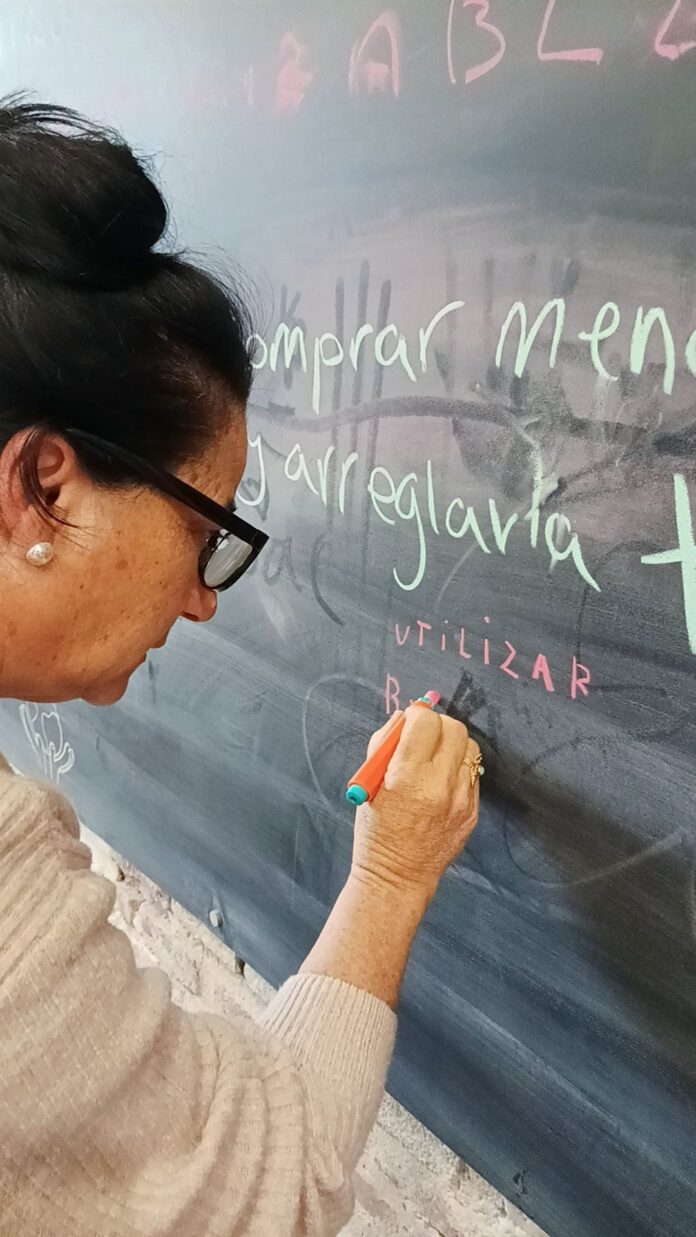 comprar meno
y arreglarla +
UTILIZAR
R